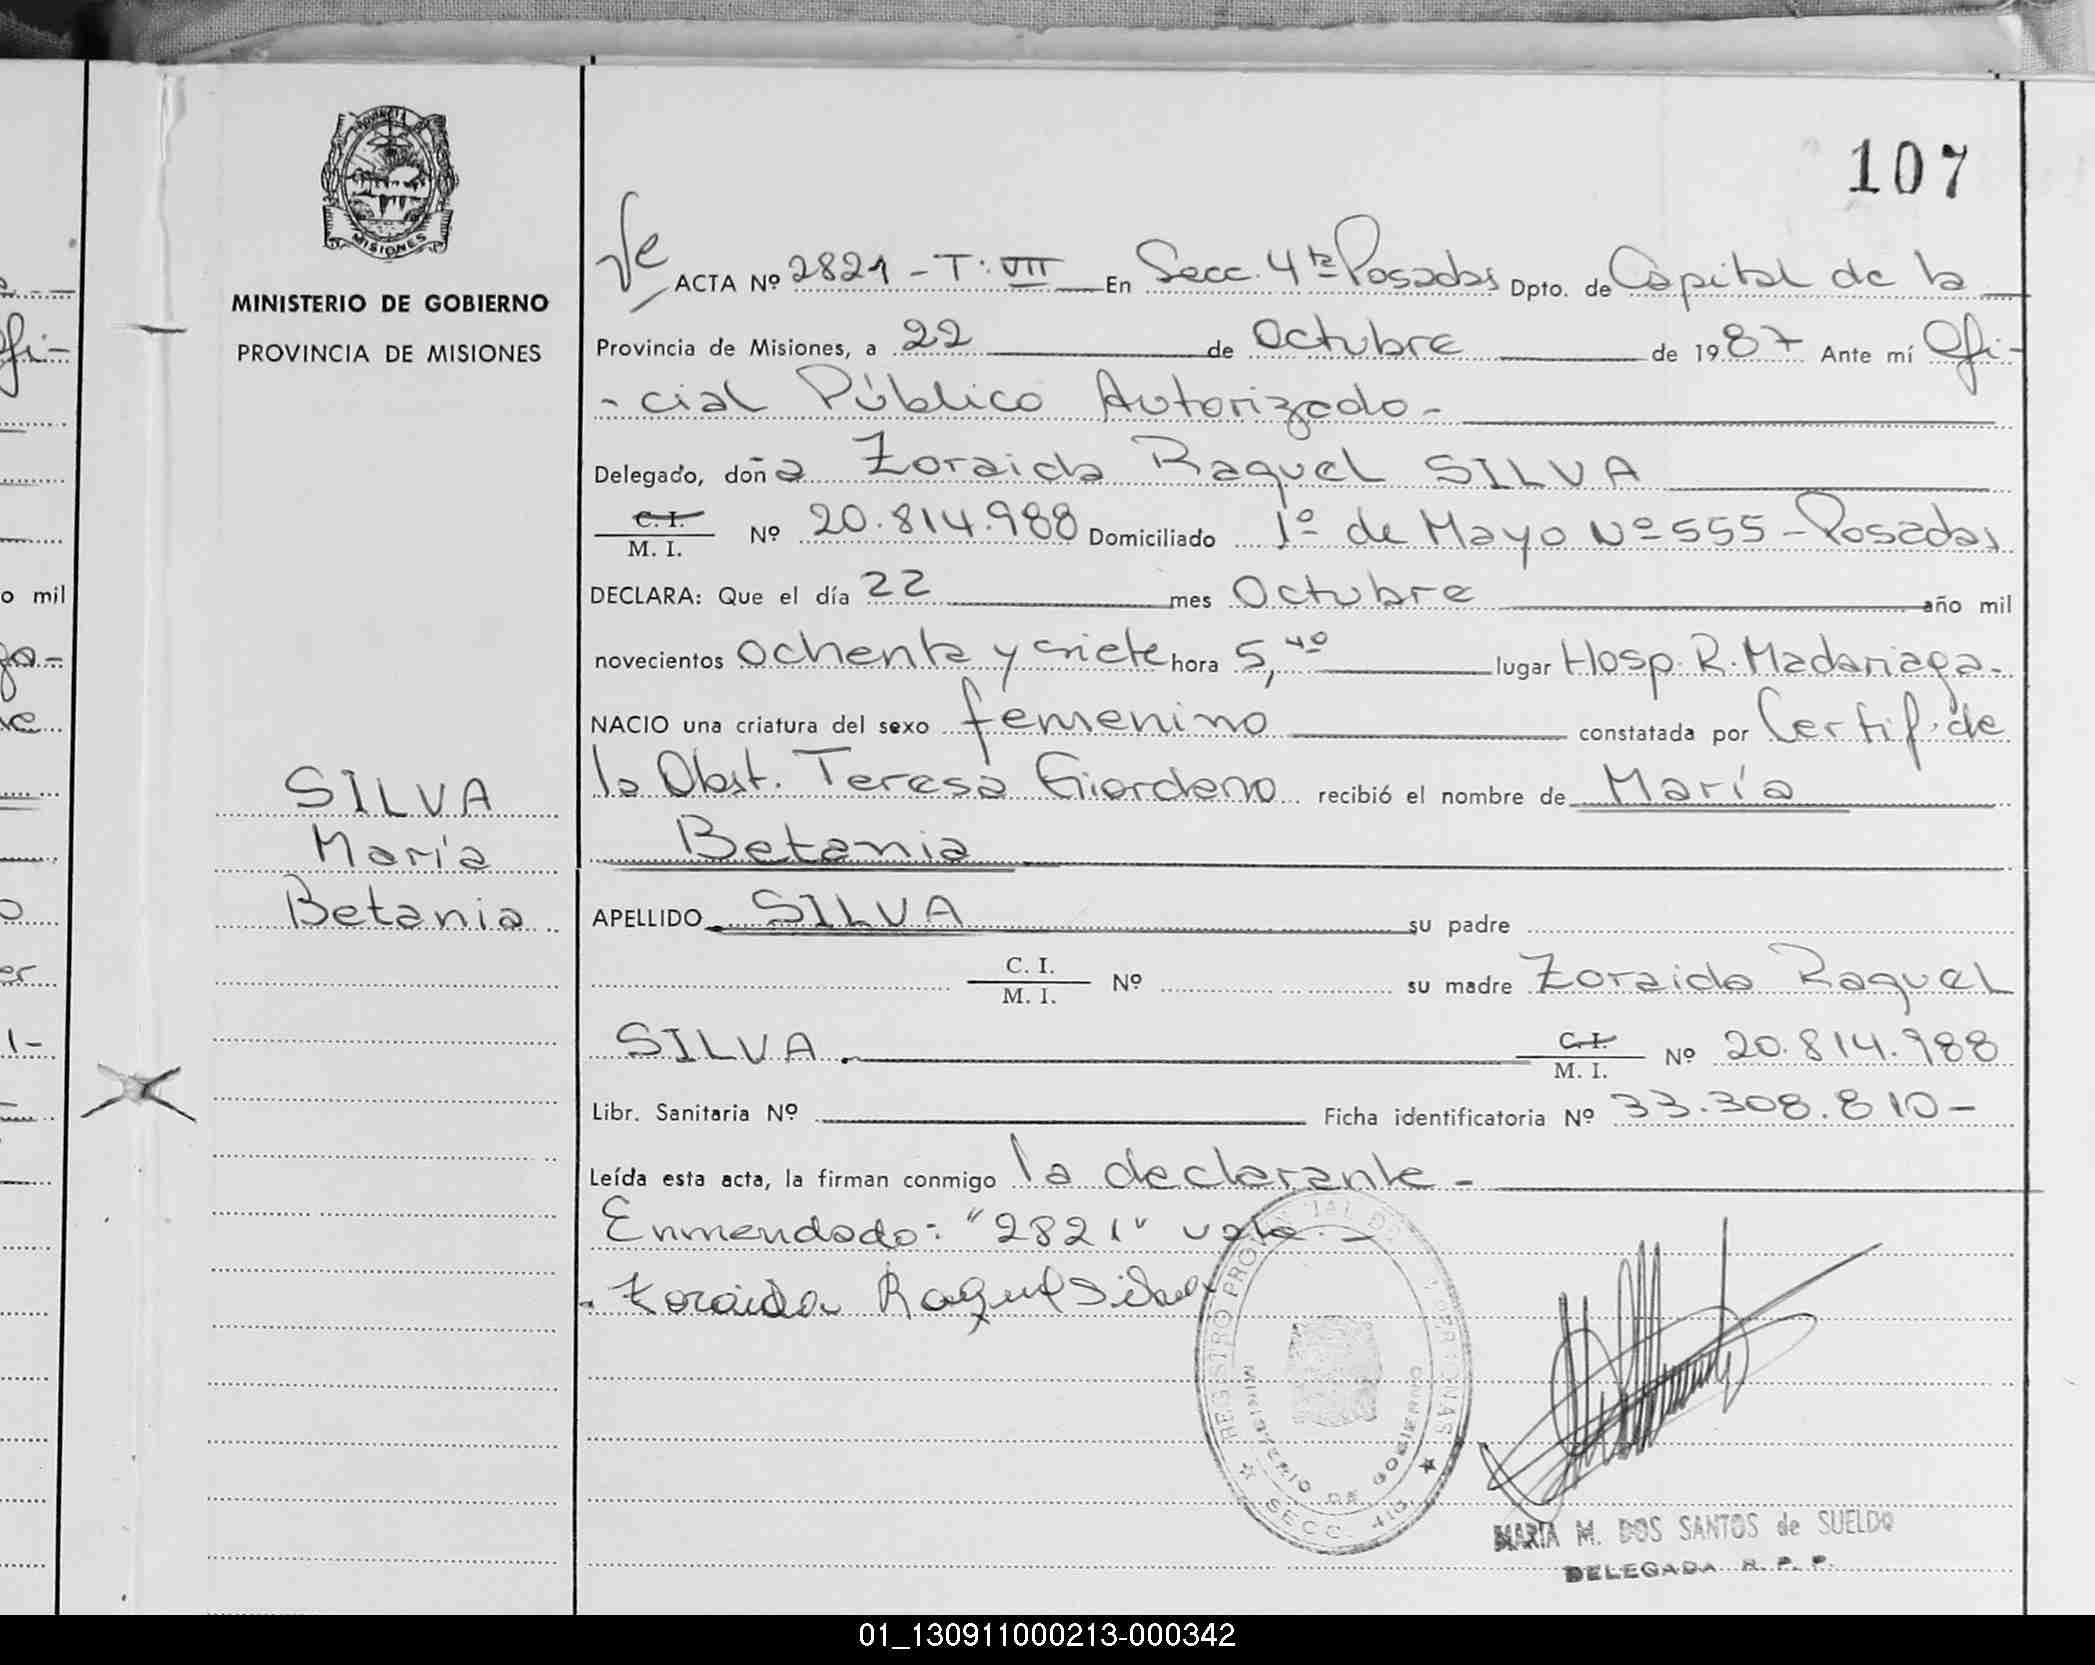 107
PROVINCIA DE
MISIONES
MINISTERIO DE GOBIERNO
PROVINCIA DE MISIONES
SILVA
María
Betania
ACTA Nº 2821 - T. VII En Secc. 4ta Posadas Dpto. de Capital de la
Provincia de Misiones, a 22 de Octubre de 1987 Ante mí Ofi-
- cial Público Autorizado -
Delegado, doña Zoraida Raquel SILVA
C. I. / M. I. Nº 20.814.988 Domiciliado 1º de Mayo Nº 555 - Posadas
DECLARA: Que el día 22 mes Octubre año mil
novecientos ochenta y siete hora 5,40 lugar Hosp. R. Madariaga-
NACIO una criatura del sexo femenino constatada por Certif. de
la Obst. Teresa Giordano recibió el nombre de María
Betania
APELLIDO SILVA su padre
C. I. / M. I. Nº su madre Zoraida Raquel
SILVA. C. I. / M. I. Nº 20.814.988
Libr. Sanitaria Nº Ficha identificatoria Nº 33.308.810-
Leída esta acta, la firman conmigo la declarante -
Enmendado: "2821" vale. -
Zoraida Raquel Silva
REGISTRO PROVINCIAL DE PERSONAS
MINISTERIO DE GOBIERNO
SECC. 4ta
MARIA M. DOS SANTOS de SUELDO
DELEGADA R. P. P.
01_130911000213-000342